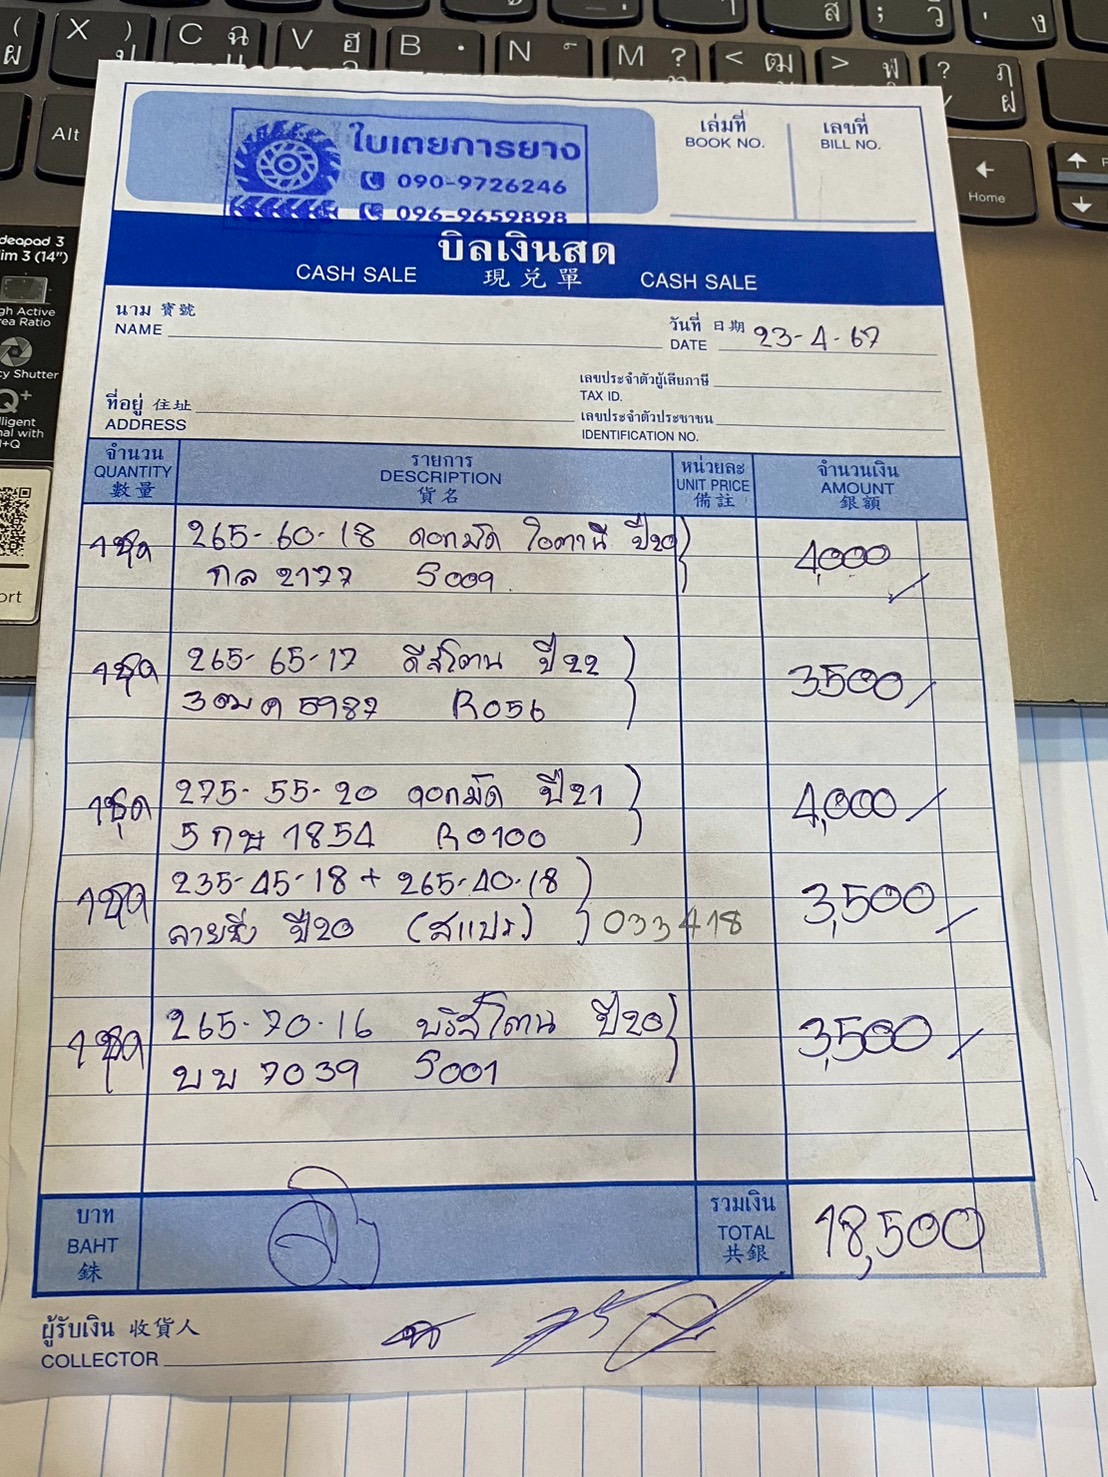 ( ผ X ) ป C ฉ V ฮ B N M ? < ฒ > ฬ ? ฦ ฝ
ส ; ว ง
Alt
Home
ใบเตยการยาง
090-9726246
096-9659898
เล่มที่
BOOK NO.
เลขที่
BILL NO.
บิลเงินสด
CASH SALE 現兌單 CASH SALE
deapad 3
im 3 (14")
gh Active
rea Ratio
cy Shutter
Q+
lligent
nal with
I+Q
ort
นาม 寳號
NAME
วันที่ 日期
DATE 23-4-67
เลขประจำตัวผู้เสียภาษี
TAX ID.
ที่อยู่ 住址
ADDRESS
เลขประจำตัวประชาชน
IDENTIFICATION NO.
จำนวน
QUANTITY
數量
รายการ
DESCRIPTION
貨名
หน่วยละ
UNIT PRICE
備註
จำนวนเงิน
AMOUNT
銀額
1ชุด 265-60-18 ดอกมัด โอตานิ ปี20 4,000
กล 2177 S009
1ชุด 265-65-17 ดีสโตน ปี22 3500
3ฒค 5987 R056
1ชุด 275-55-20 ดอกมัด ปี21 4,000
5กษ 1854 R0100
1ชุด 235-45-18 + 265-40-18 3,500
ลายซิ่ง ปี20 (สแปร) 033418
1ชุด 265-70-16 บริสโตน ปี20 3,500
บบ 7039 S001
บาท
BAHT
銖
รวมเงิน
TOTAL
共銀
18,500
ผู้รับเงิน 收貨人
COLLECTOR